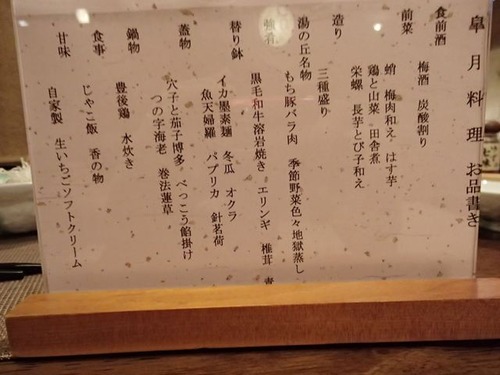 皐月料理 お品書き
食前酒
梅酒 炭酸割り
前菜
蛸 梅肉和え はす芋
鶏と山菜 田舎煮
栄螺 長芋とび子和え
造り
三種盛り
湯の丘名物
もち豚バラ肉 季節野菜色々地獄蒸し
黒毛和牛溶岩焼き エリンギ 椎茸
替り鉢
イカ墨素麺 冬瓜 オクラ
魚天婦羅 パプリカ 針茗荷
蓋物
穴子と茄子博多 べっこう餡掛け
つの字海老 巻法蓮草
鍋物
豊後鶏 水炊き
食事
じゃこ飯 香の物
甘味
自家製 生いちごソフトクリーム